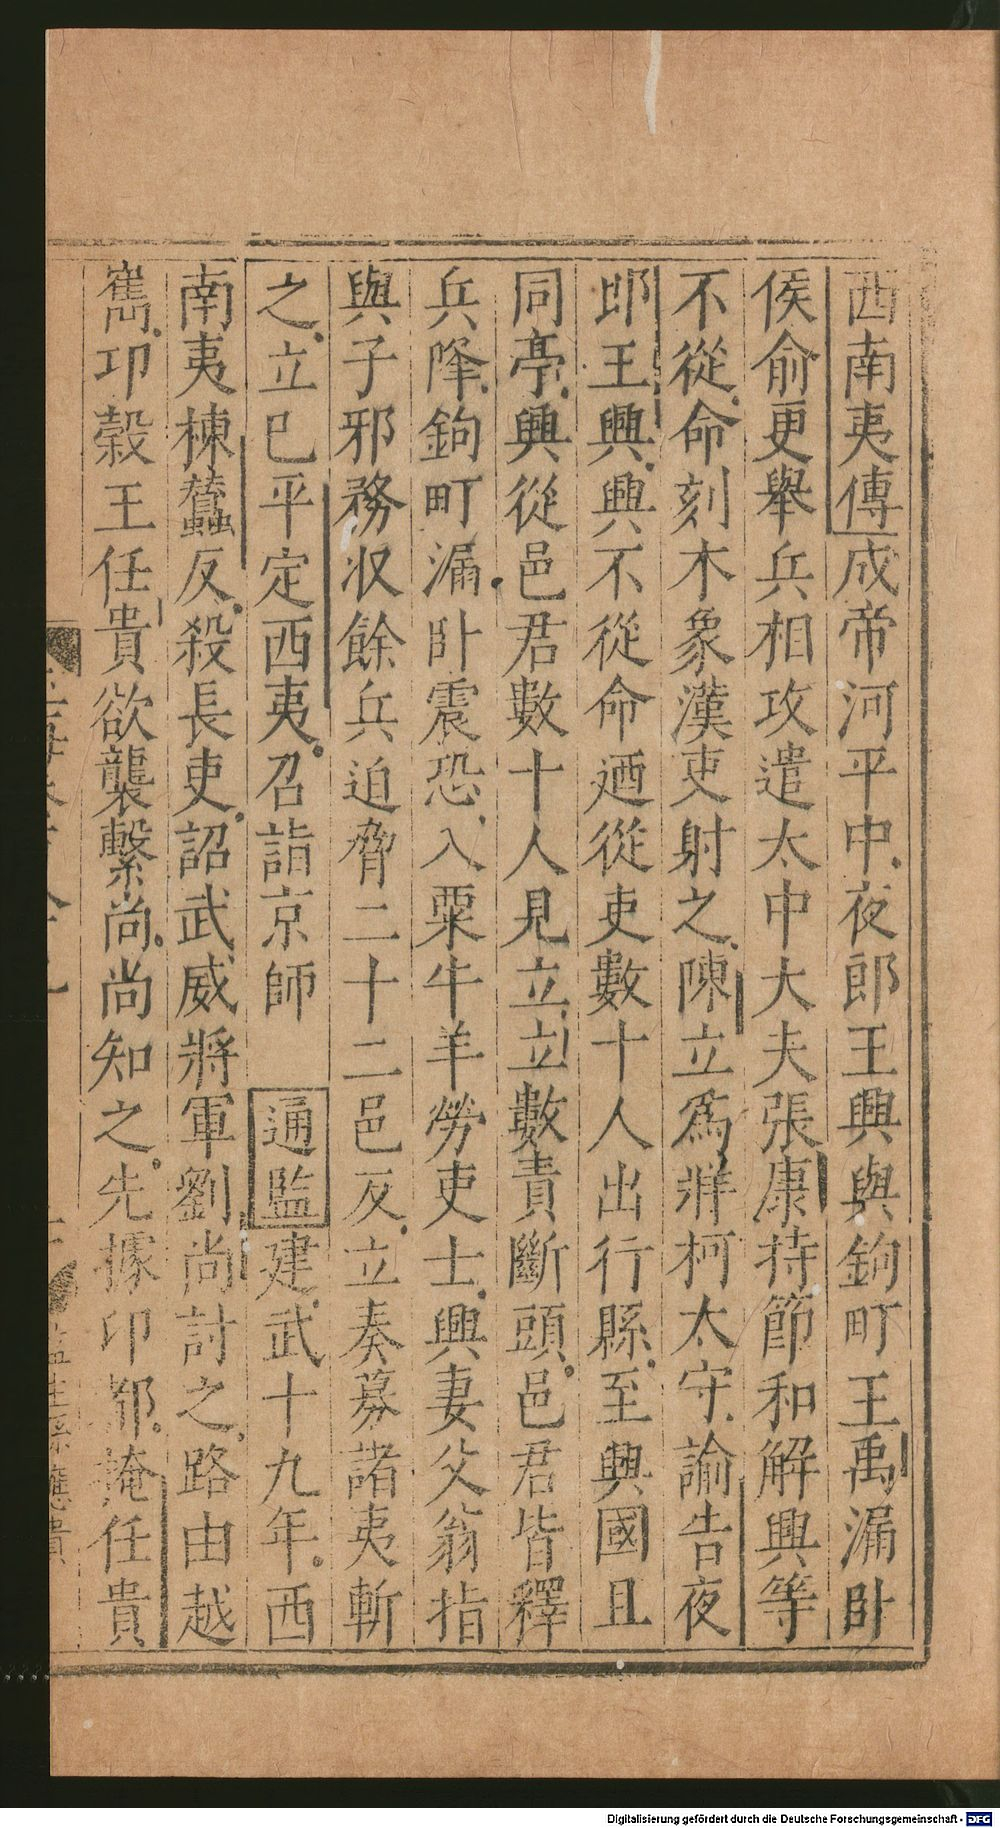 西南夷傳成帝河平中夜郎王興與鉤町王禹漏卧
侯俞更舉兵相攻遣太中大夫張康持節和解興等
不從命刻木象漢吏射之陳立爲牂柯太守諭告夜
郎王興興不從命廼從吏數十人出行縣至興國且
同亭興從邑君數十人見立立數責斷頭邑君皆釋
兵降鉤町漏卧震恐入粟牛羊勞吏士興妻父翁指
與子邪務收餘兵迫脅二十二邑反立奏募諸夷斬
之立巳平定西夷召詣京師 通監建武十九年西
南夷棟蠶反殺長吏詔武威將軍劉尚討之路由越
嶲邛穀王任貴欲襲擊尚尚知之先據邛都掩任貴
監生孫應貴
Digitalisierung gefördert durch die Deutsche Forschungsgemeinschaft - DFG